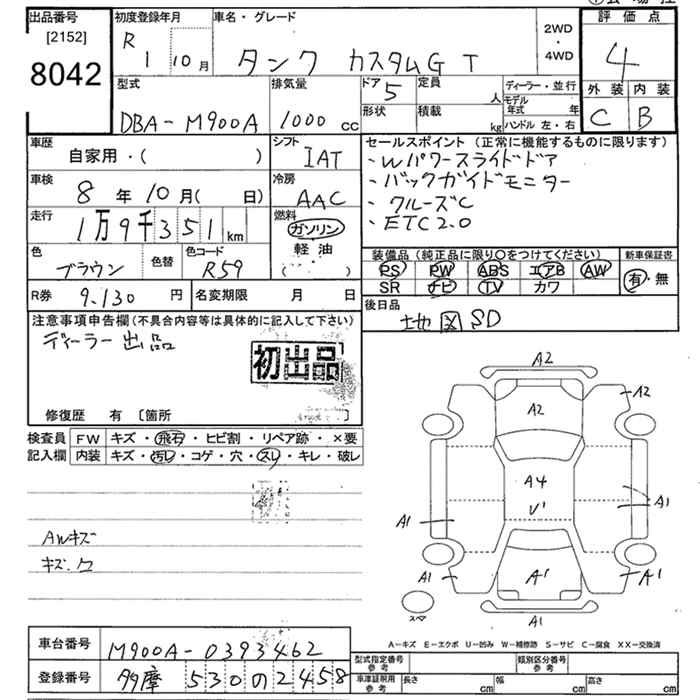 出品番号
[2152]
8042
初度登録年月
R 1 10月
車名・グレード
タンク カスタムG T
2WD
・
4WD
評価点
4
外装 内装
C B
型式
DBA-M900A
排気量
1000 cc
ドア
5
形状
定員
人
積載
kg
ディーラー・並行
モデル年式 年
ハンドル 左・右
車歴
自家用・( )
シフト
IAT
車検
8年10月( 日)
冷房
AAC
走行
1万9千351km
燃料
ガソリン
軽油
( ・ )
色
ブラウン
色替
色コード
R59
R券
9.130 円
名変期限 月 日
セールスポイント (正常に機能するものに限ります)
・Wパワースライドドア
・バックガイドモニター
・クルーズC
・ETC2.0
装備品 (純正品に限り○をつけてください)
PS PW ABS エアB AW
SR ナビ TV カワ
新車保証書
有・無
後日品
地図SD
注意事項申告欄 (不具合内容等は具体的に記入して下さい)
ディーラー出品
初出品
修復歴 有 〔箇所
検査員
記入欄
FW キズ・飛石・ヒビ割・リペア跡・×要
内装 キズ・汚レ・コゲ・穴・スレ・キレ・破レ
AWキズ
キズ.ク
A2
A2
A2
A4
U1
A1
A1
A1
A1
A1
A1
スペア
A-キズ E-エクボ U-凹み W-補修跡 S-サビ C-腐食 XX-交換済
車台番号
M900A-0393462
登録番号
多摩 530の2458
型式指定番号
参考
類別区分番号
参考
車庫証明用
参考
長さ cm
幅 cm
高さ cm